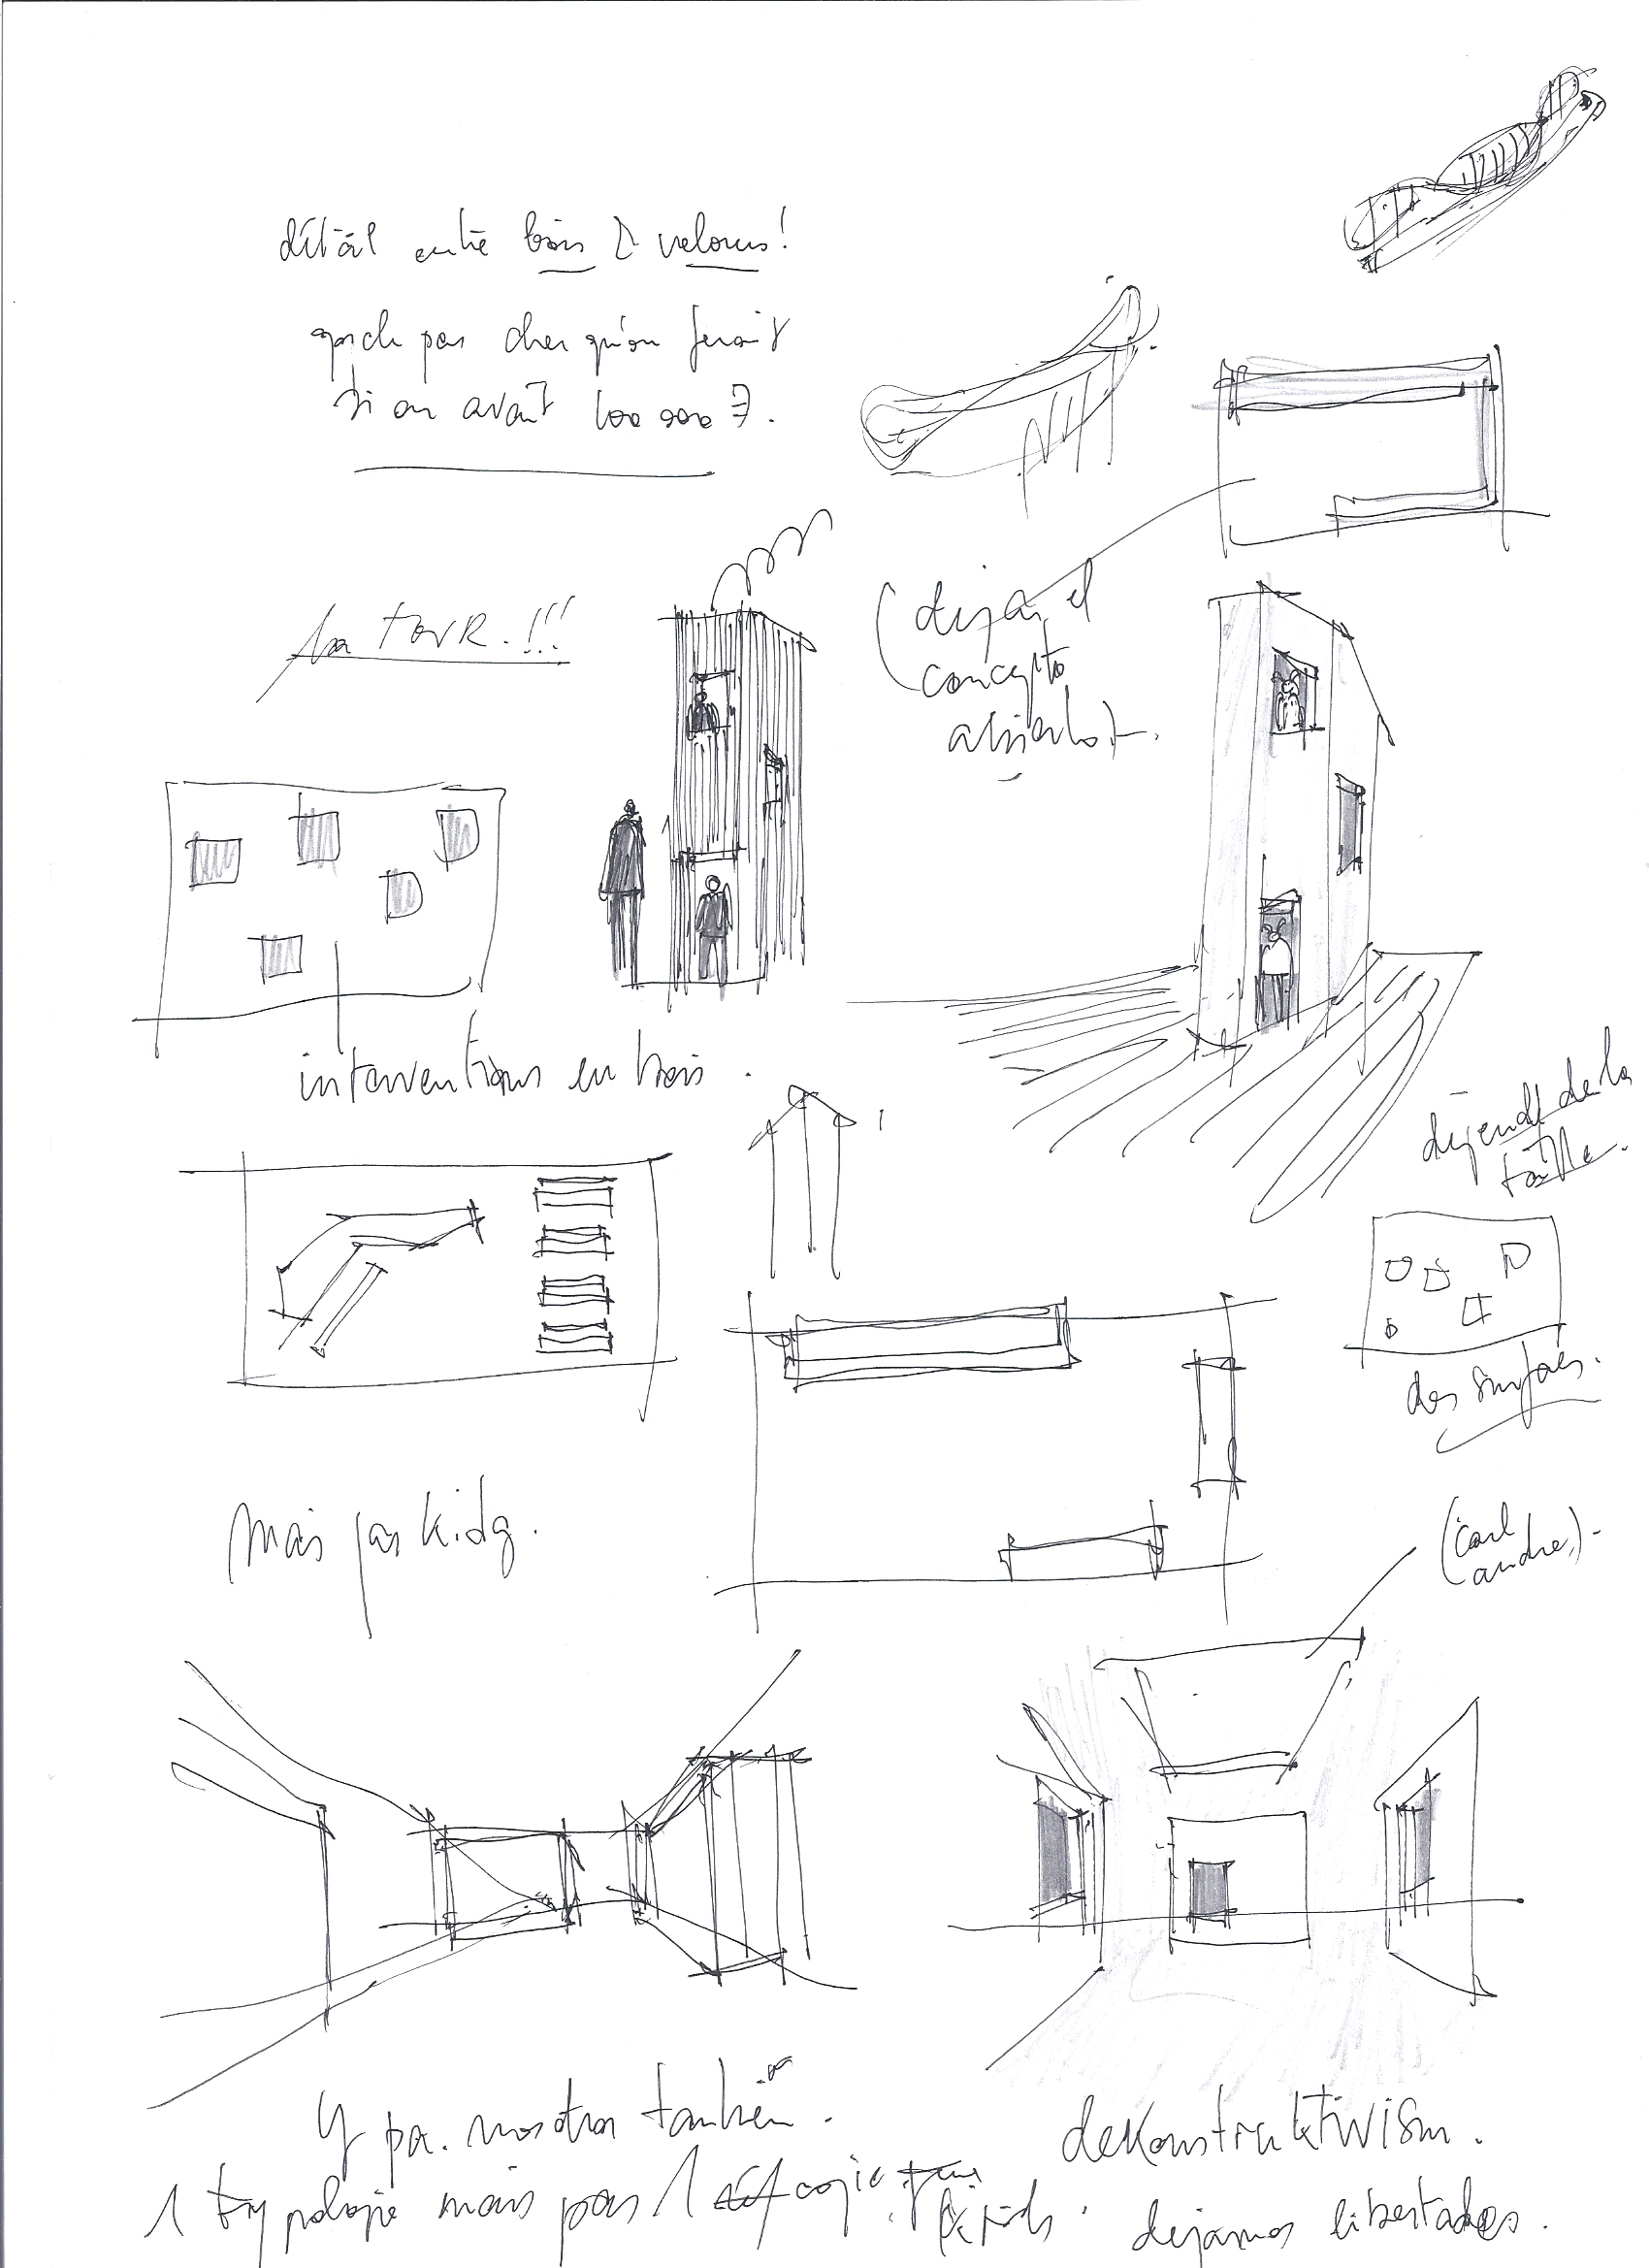 détail entre bois & velours!
pas cher qu'on ferait
si on avait 100 000 F.
la TOUR.!!!
(dejar el
concepto
abierto).
interventions en bois.
dépend de la
taille.
des surfaces.
mais pas kids.
(carl
andre).
Y pa. nosotros también.
dekonstruktivism.
1 typologie mais pas 1 copie
dejamos libertades.